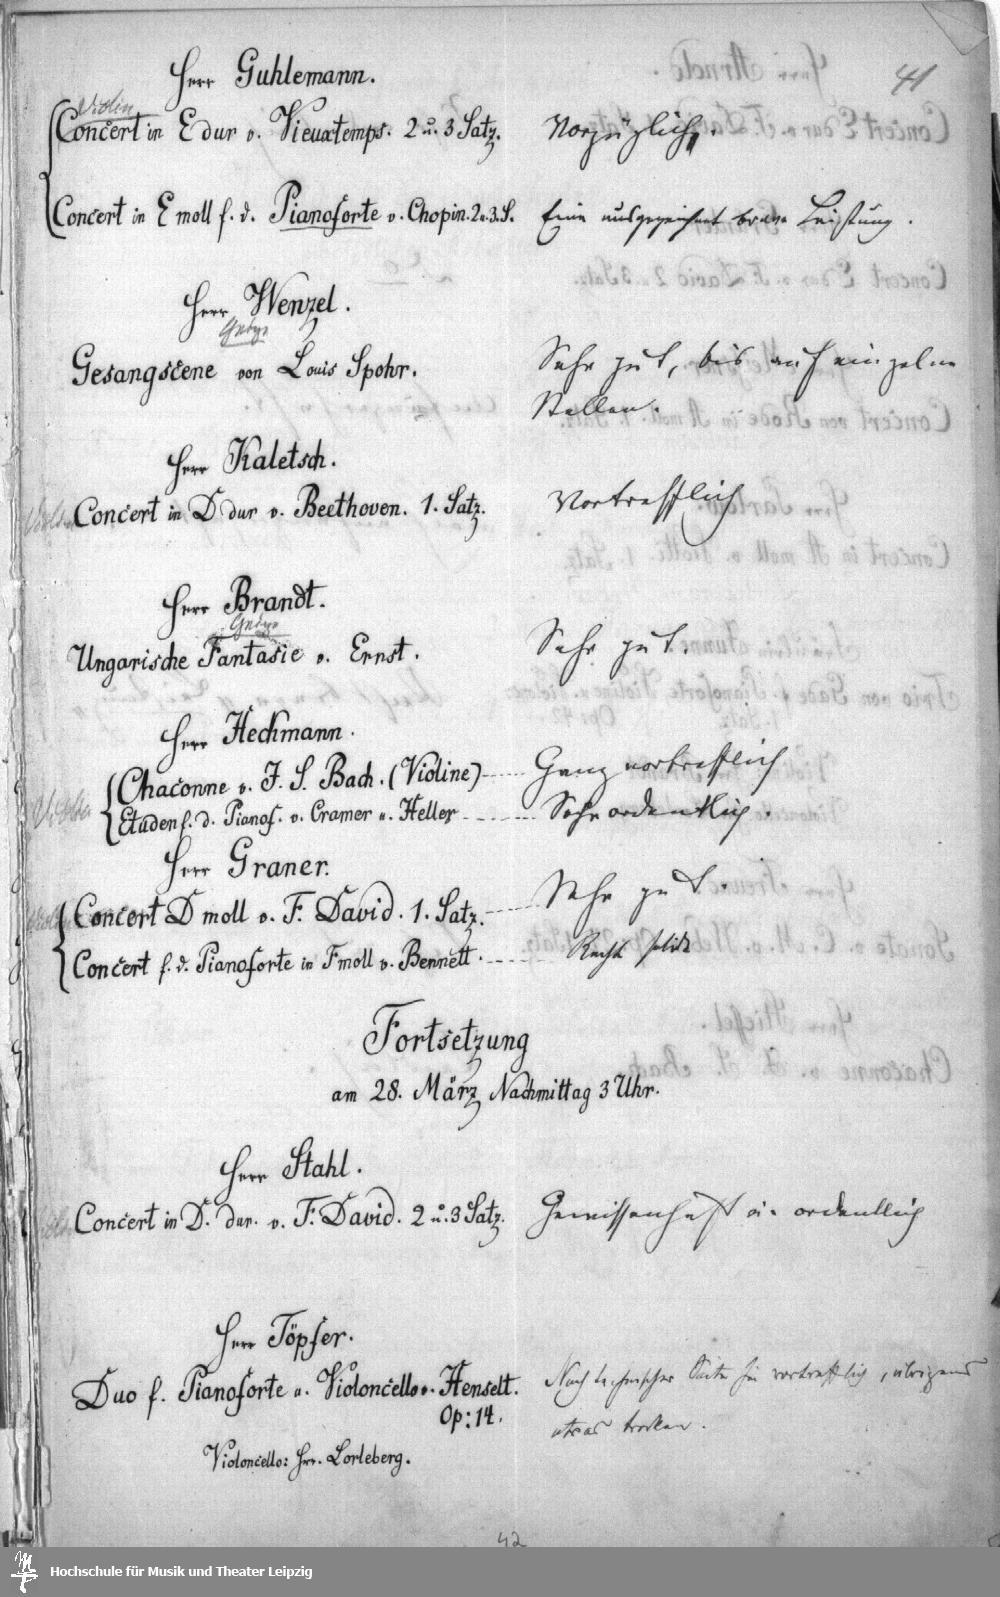 41
Herr Guhlemann.
Violin
Concert in E dur v. Vieuxtemps. 2 u. 3 Satz. Vorzüglich.
Concert in E moll f. d. Pianoforte v. Chopin. 2 u. 3. S. Eine ausgezeichnet brave Leistung.
Herr Wenzel.
Geige
Gesangscene von Louis Spohr. Sehr gut, bis auf einzelne
Stellen.
Herr Kaletsch.
Violine Concert in D dur v. Beethoven. 1. Satz. Vortrefflich
Herr Brandt.
Geige
Ungarische Fantasie v. Ernst. Sehr gut.
Herr Heckmann.
Chaconne v. J. S. Bach. (Violine) Ganz vortrefflich
Violin
Etuden f. d. Pianof. v. Cramer u. Heller Sehr ordentlich.
Herr Graner.
Concert D moll v. F. David. 1. Satz. Sehr gut.
Concert f. d. Pianoforte in F moll v. Bennett. Recht solide
Fortsetzung
am 28. März Nachmittag 3 Uhr.
Herr Stahl.
Concert in D. dur. v. F. David. 2 u. 3 Satz. Gewissenhaft u. ordentlich
Herr Töpfer.
Duo f. Pianoforte u. Violoncello v. Henselt. Nach technischer Seite hin vortrefflich, übrigens
Op: 14. etwas trocken.
Violoncello: Hrr. Lorleberg.
42
Hochschule für Musik und Theater Leipzig